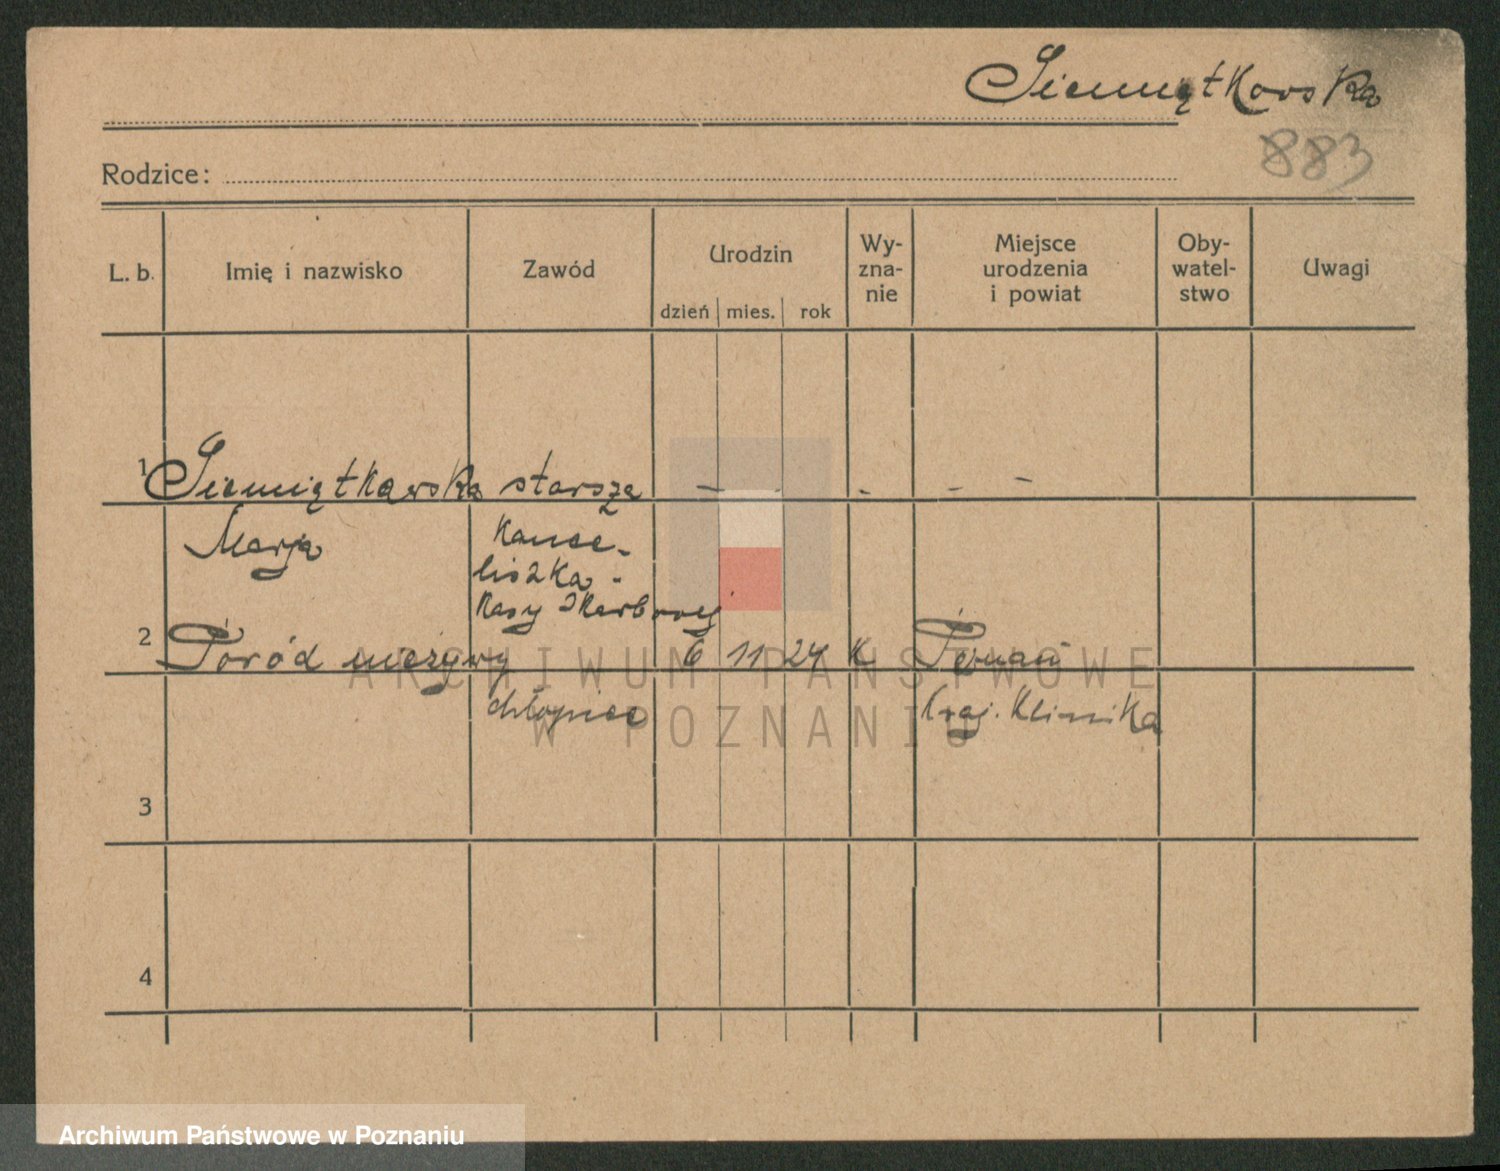 Siemiątkowska
883
Rodzice:
L. b. Imię i nazwisko Zawód Urodzin dzień mies. rok Wy-zna-nie Miejsce urodzenia i powiat Oby-watel-stwo Uwagi
1 Siemiątkowska starsza - - - - -
Marja kance-
liszka -
Kasy Skarbowej
2 Poród nieżywy 6 11 24 K Poznań
chłopiec Kraj. Klinika
3
4
ARCHIWUM PAŃSTWOWE
W POZNANIU
Archiwum Państwowe w Poznaniu